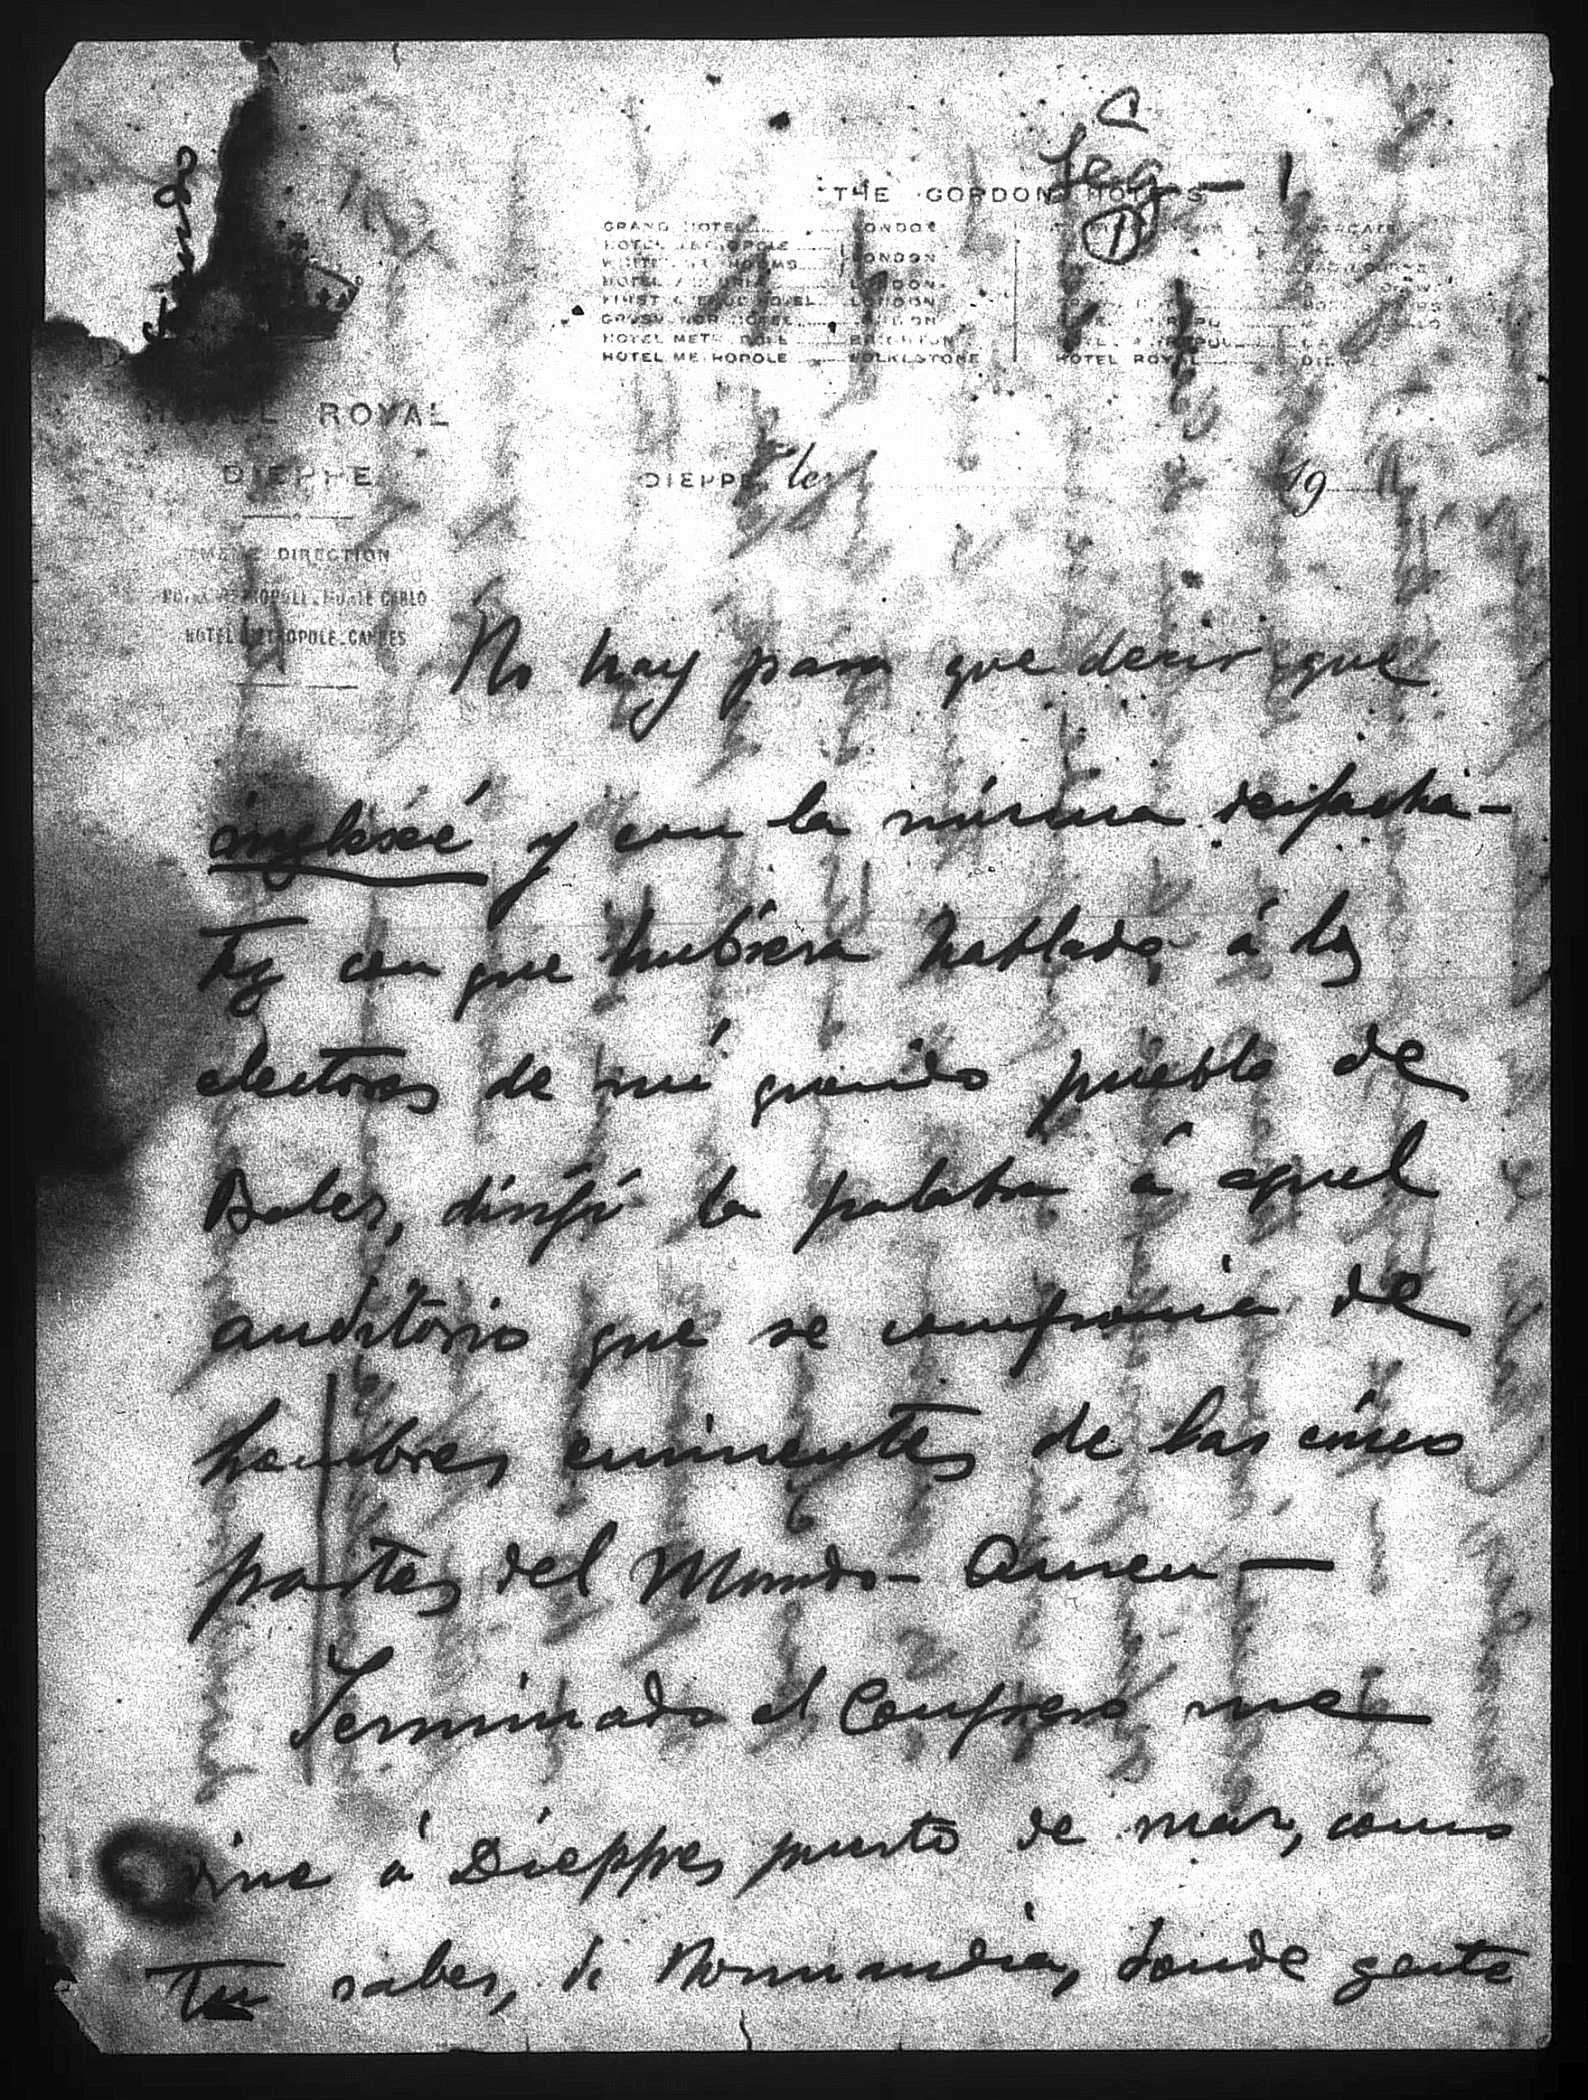 THE GORDON HOTELS
GRAND HOTEL LONDON
HOTEL METROPOLE LONDON
LONDON
HOTEL LONDON
FIRST AVENUE HOTEL LONDON
GROSVENOR HOTEL LONDON
HOTEL METROPOLE BRIGHTON
HOTEL METROPOLE FOLKESTONE
HOTEL ROYAL DIEPPE
HOTEL ROYAL
DIEPPE
DIEPPE, le 19
MÊME DIRECTION
HOTEL METROPOLE. MONTE CARLO
HOTEL METROPOLE. CANNES
No hay para que decir que
inglesé y con la misma desfacha-
tez con que hubiera hablado á los
electores de mi querido pueblo de
Baler, dirigí la palabra á aquel
auditorio que se componia de
hombres eminentes de las cinco
partes del Mundo - Amen -
Terminado el Congreso me
vine á Dieppe, puerto de mar, como
Tu sabes, de Normandia, donde gente